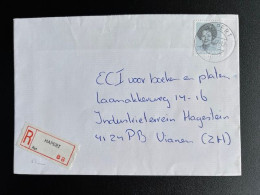 ECI voor boeken en platen
Laanakkerweg 14-16
Industrieterrein Hagestein
4124 PB Vianen (ZH)
R
HAPERT